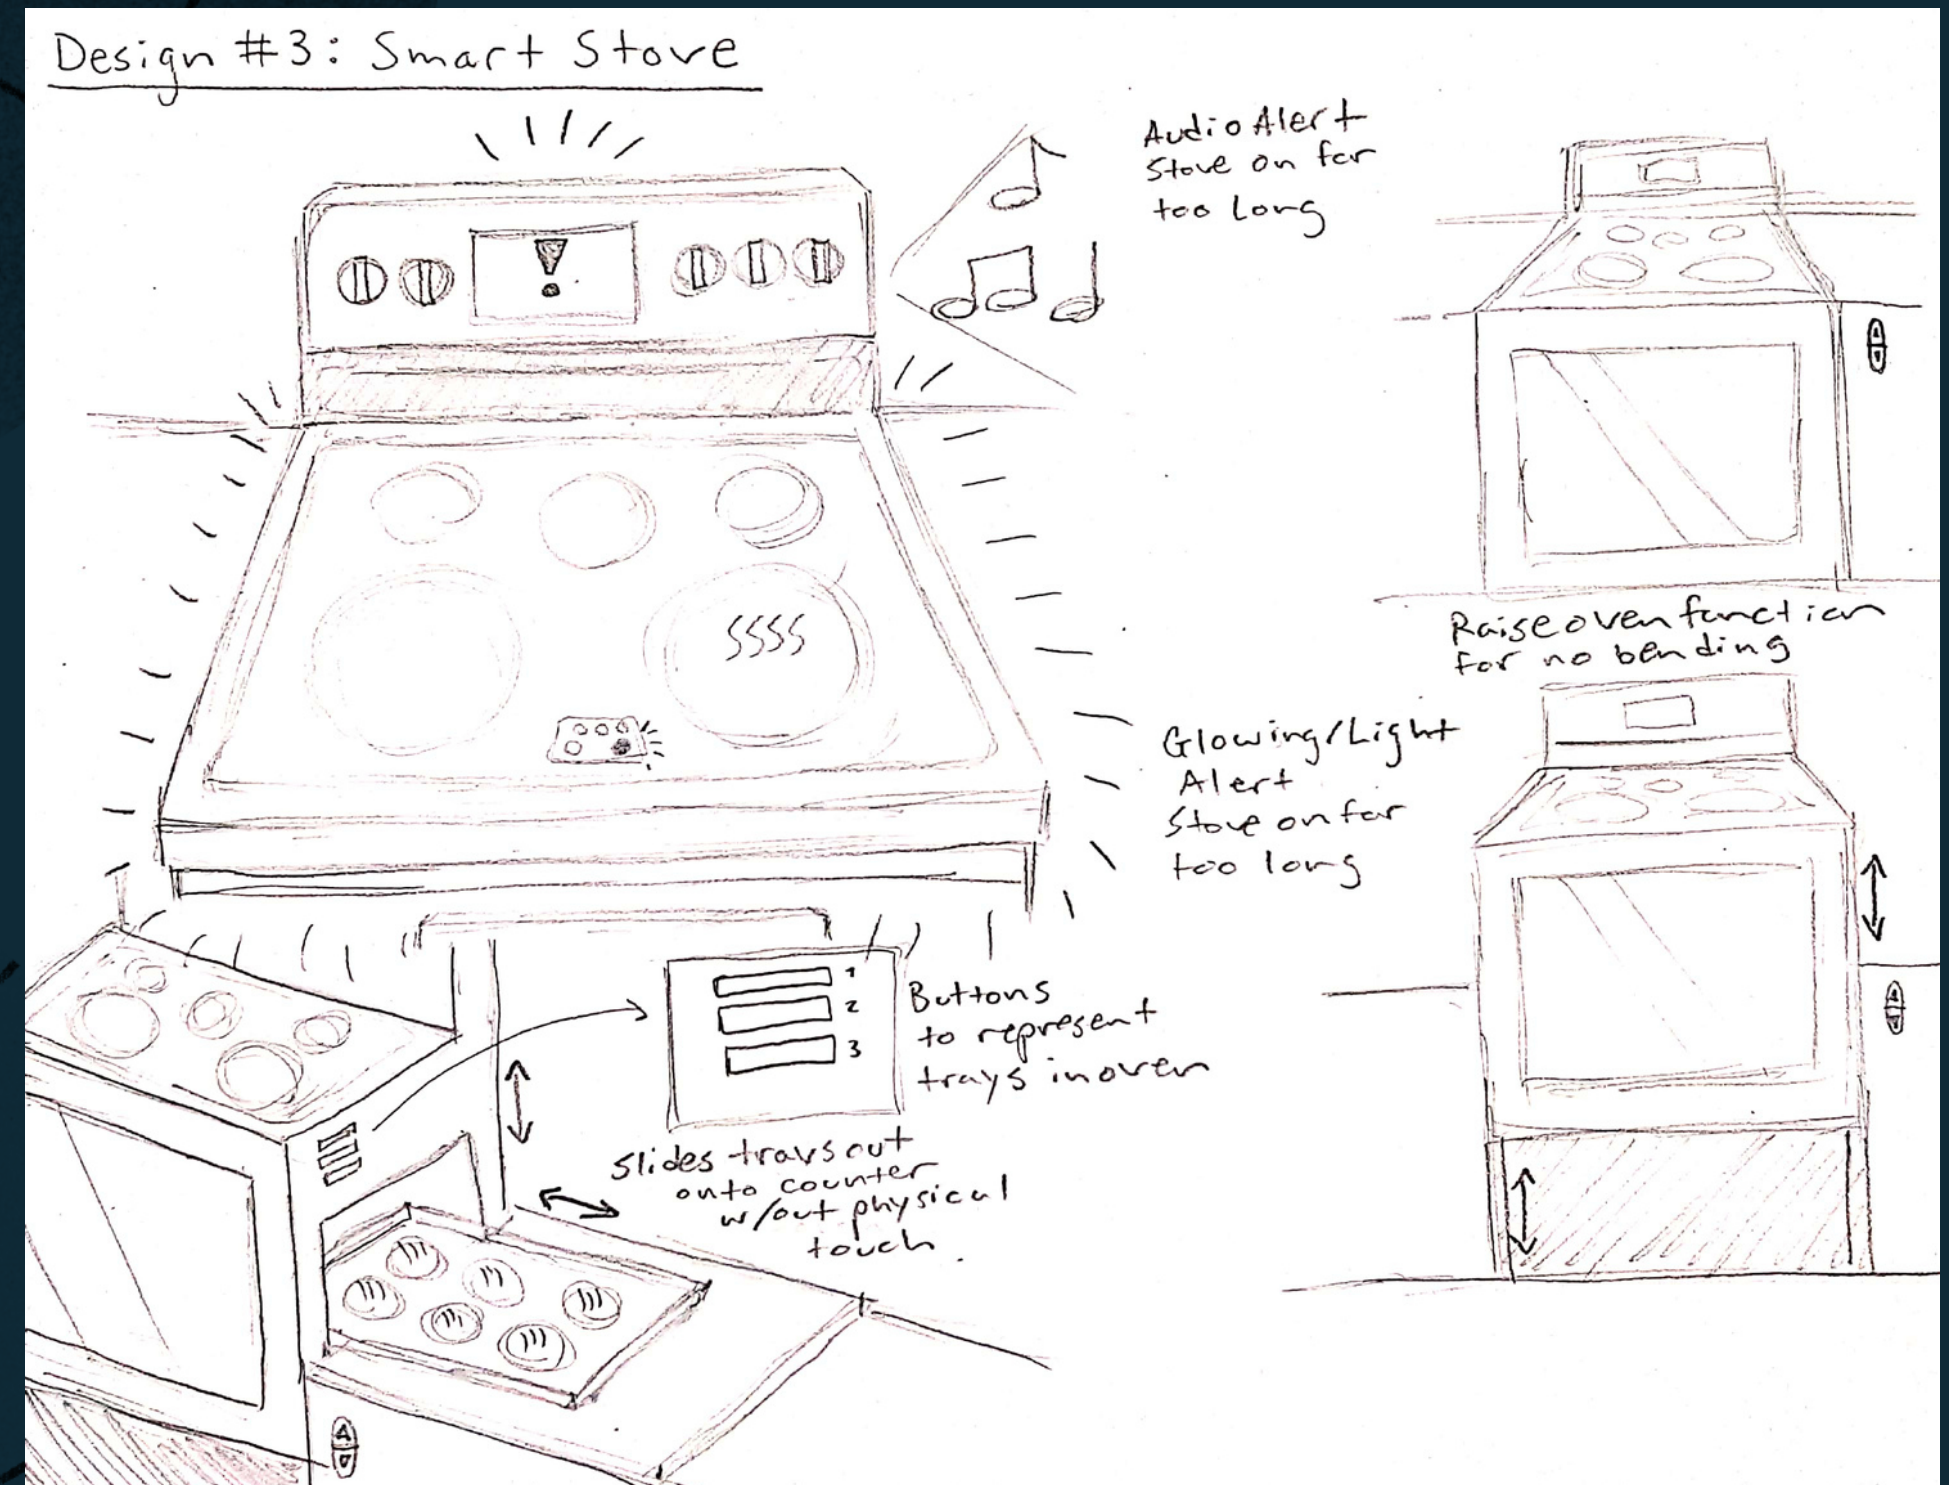 Design #3: Smart Stove
!
Audio Alert
Stove on for
too Long
Raise oven function
for no bending
Glowing/Light
Alert
Stove on for
too long
1
2
3
Buttons
to represent
trays in oven
Slides trays out
onto counter
w/out physical
touch